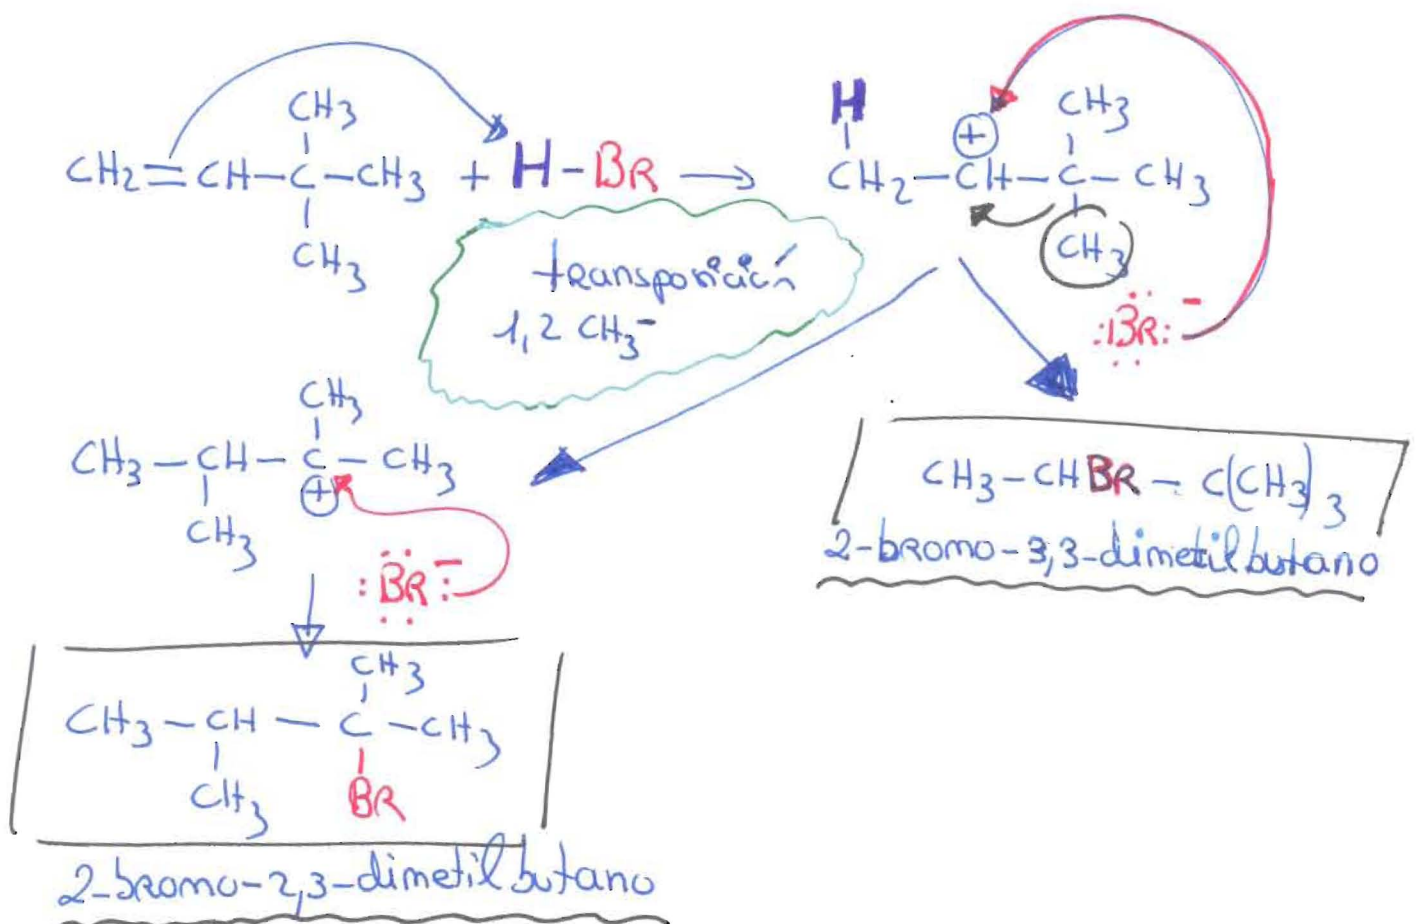 CH3
CH2=CH-C-CH3 + H-BR →
CH3
H
⊕ CH3
CH2-CH-C-CH3
CH3
:BR:-
transposición
1,2 CH3-
CH3
CH3-CH-C-CH3
⊕
CH3
:BR:-
CH3-CHBR-C(CH3)3
2-bromo-3,3-dimetilbutano
CH3
CH3-CH-C-CH3
CH3 BR
2-bromo-2,3-dimetilbutano